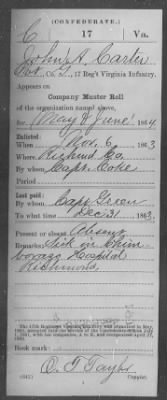 (CONFEDERATE.)
C 17 Va.
John A. Carter
Pvt., Co. I, 17 Reg't Virginia Infantry.
Appears on
Company Muster Roll
of the organization named above,
for May & June 1864
Enlisted:
When Nov. 6, 1863
Where Richmd Co.
By whom Capt. Coke
Period
Last paid:
By whom Capt Green
To what time Dec 31, 1863
Present or absent Absent
Remarks: Sick in Chim
borazo Hospital
Richmond.
Book mark:
O. T. Taylor
(642)